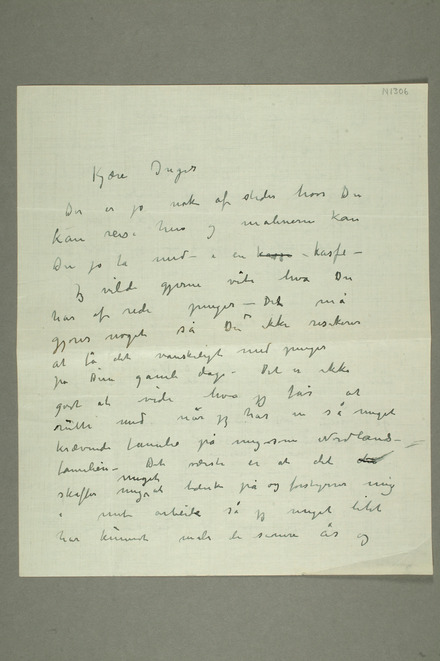 N 1306
Kjære Inger
Der er jo nok af steder hvor Du
kan reise hen og malerierne kan
Du jo ta med – i en kasse – kasse –
Jeg vilde gjerne vite hva Du
har af rede penger – Det må
gjøres noget så Du ikke risikerer
at få det vanskeligt med penger
på Dine gamle dage – Det er ikke
godt at vide hva jeg fås at
rutte med når jeg har en så meget
krævende familie på mig som Nordlands–
familien – Det værste er at det
skaffer meget at tænke på og forstyrrer mig
i mit arbeide så jeg meget lidt
har kunnet male de senere år og